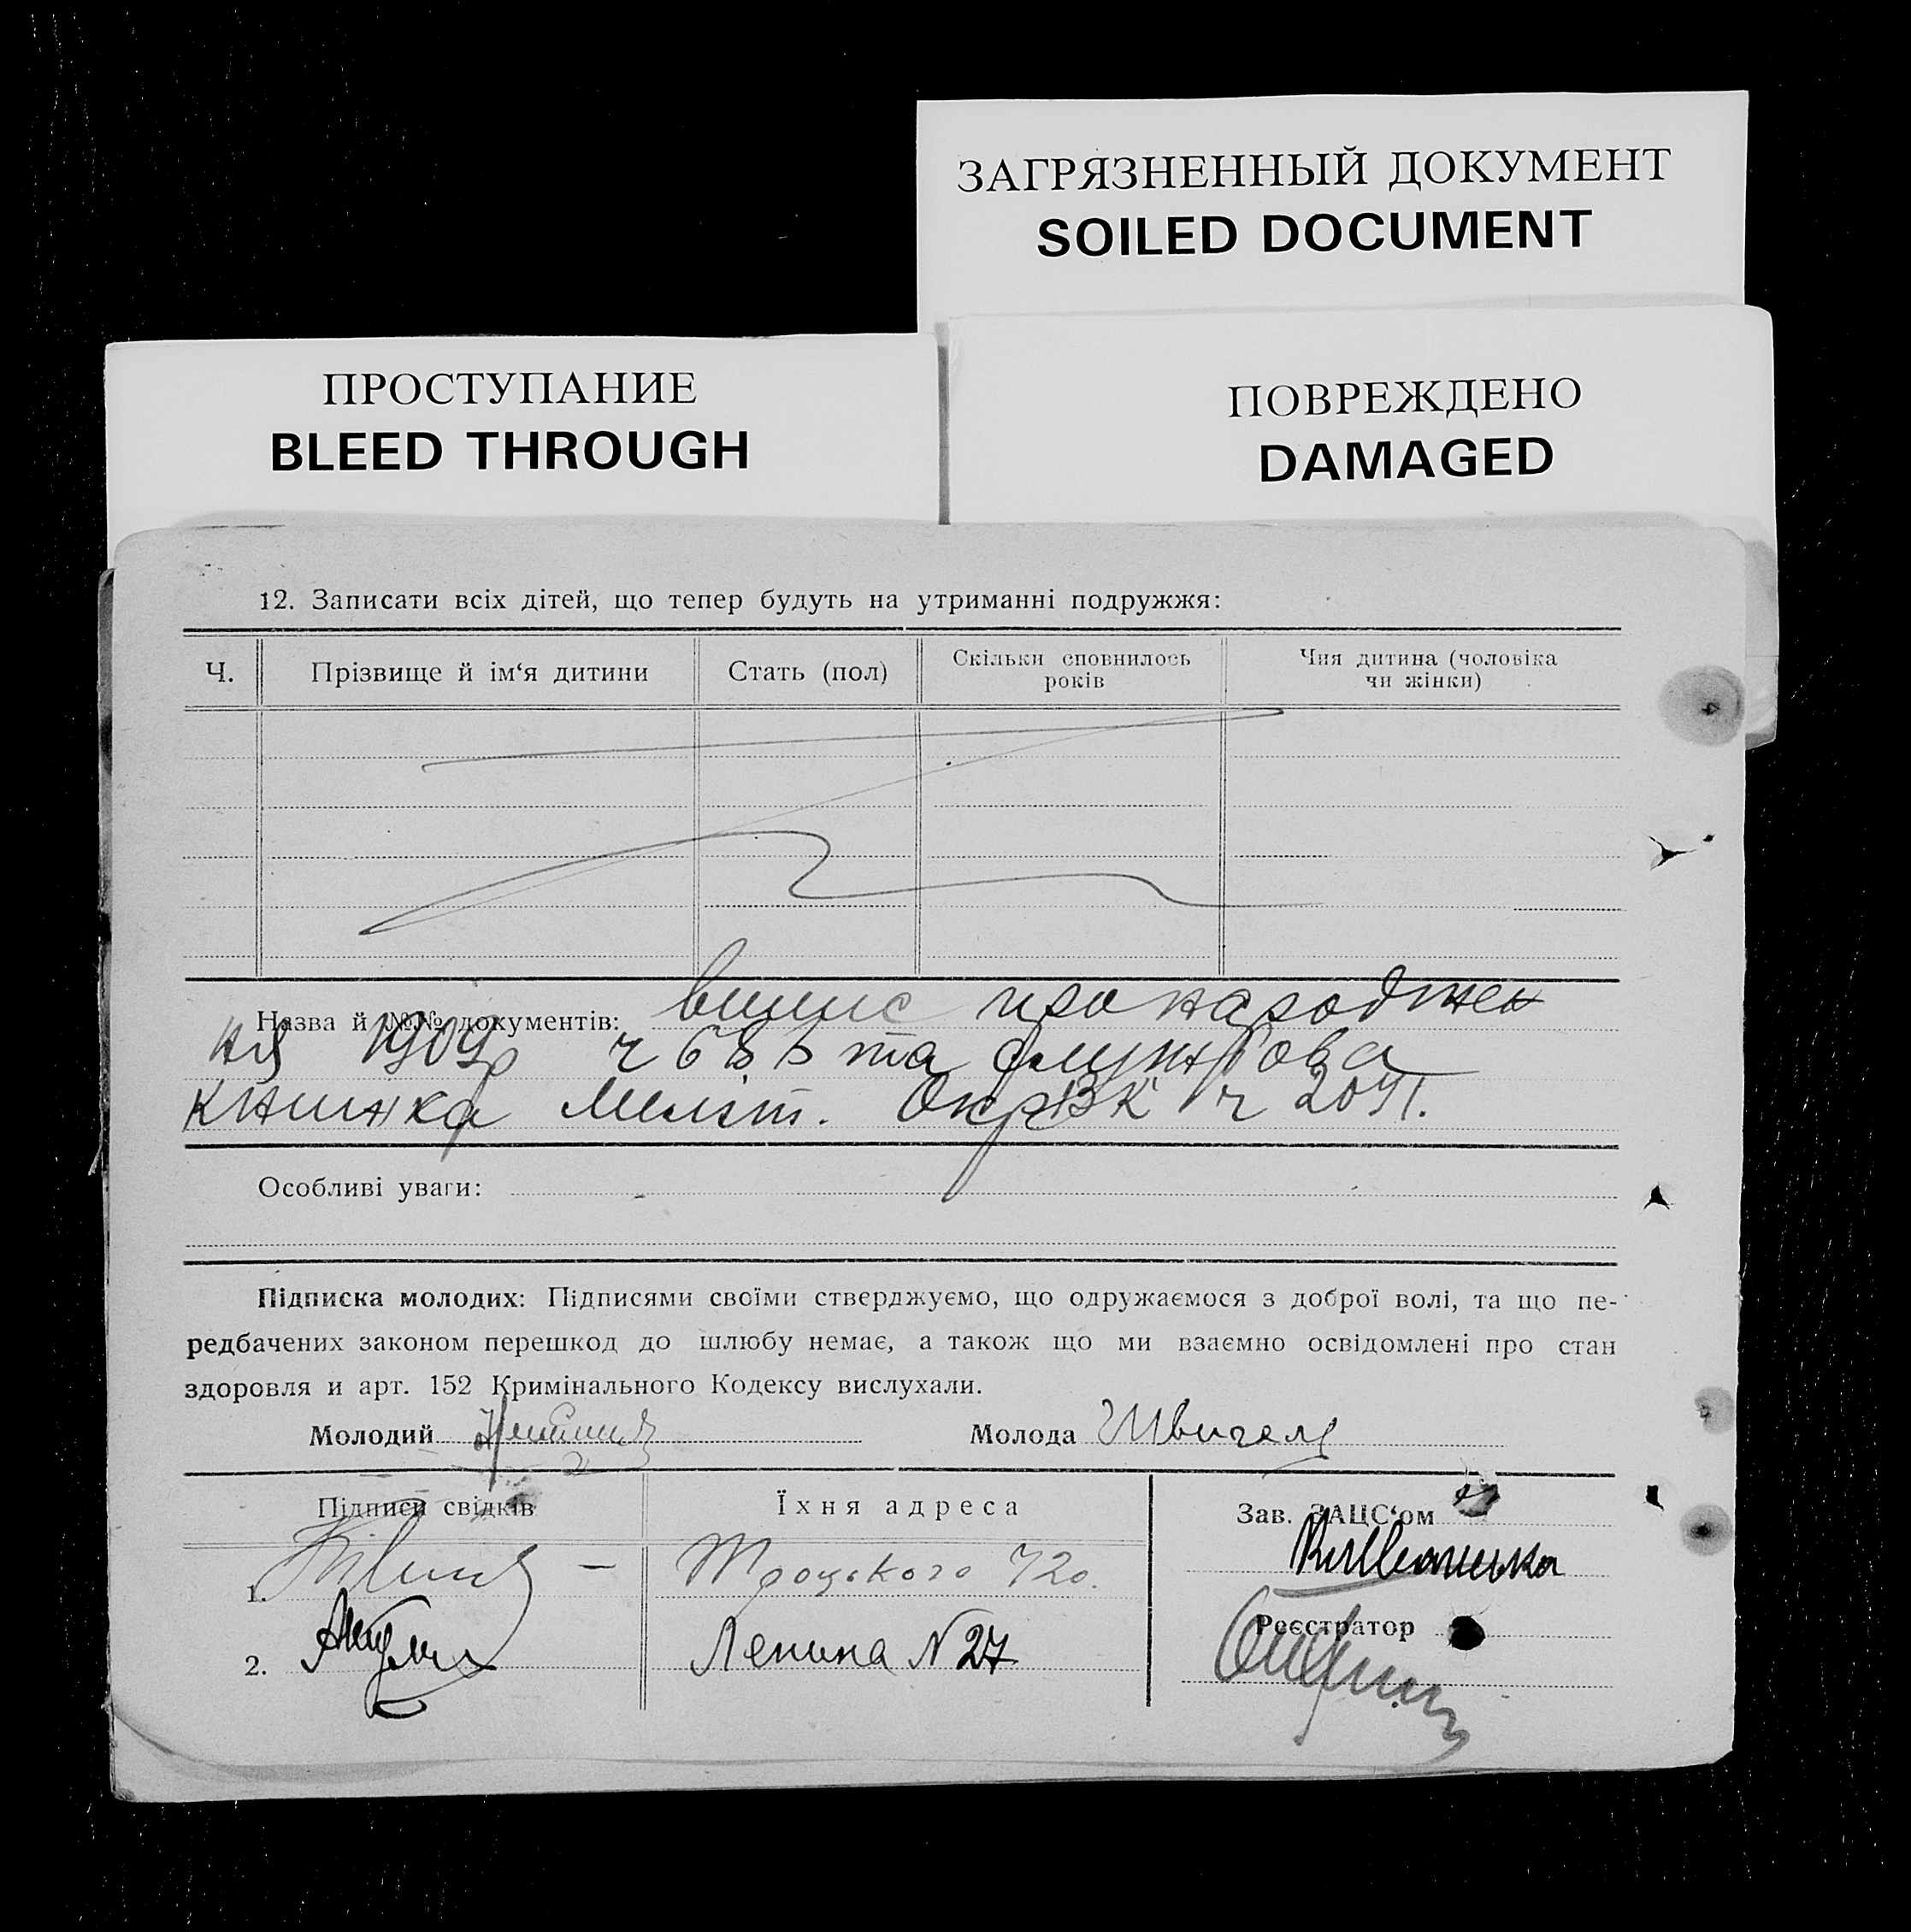 ЗАГРЯЗНЕННЫЙ ДОКУМЕНТ
SOILED DOCUMENT
ПРОСТУПАНИЕ
BLEED THROUGH
ПОВРЕЖДЕНО
DAMAGED
12. Записати всіх дітей, що тепер будуть на утриманні подружжя:
Ч.
Прізвище й ім‘я дитини
Стать (пол)
Скільки сповнилось
років
Чия дитина (чоловіка
чи жінки)
Назва й №№ документів: випис про народжен
ня 1909р ч та службова
книжка Меліт. ОкрВК ч 2091.
Особливі уваги:
Підписка молодих: Підписями своїми стверджуємо, що одружаємося з доброї волі, та що пе-
редбачених законом перешкод до шлюбу немає, а також що ми взаємно освідомлені про стан
здоровля и арт. 152 Кримінального Кодексу вислухали.
Молодий
Молода Швигель
Підписи свідків
Їхня адреса
Зав. ЗАЦС‘ом
1.
Троцького 72
Реєстратор
2.
Ленина N 27